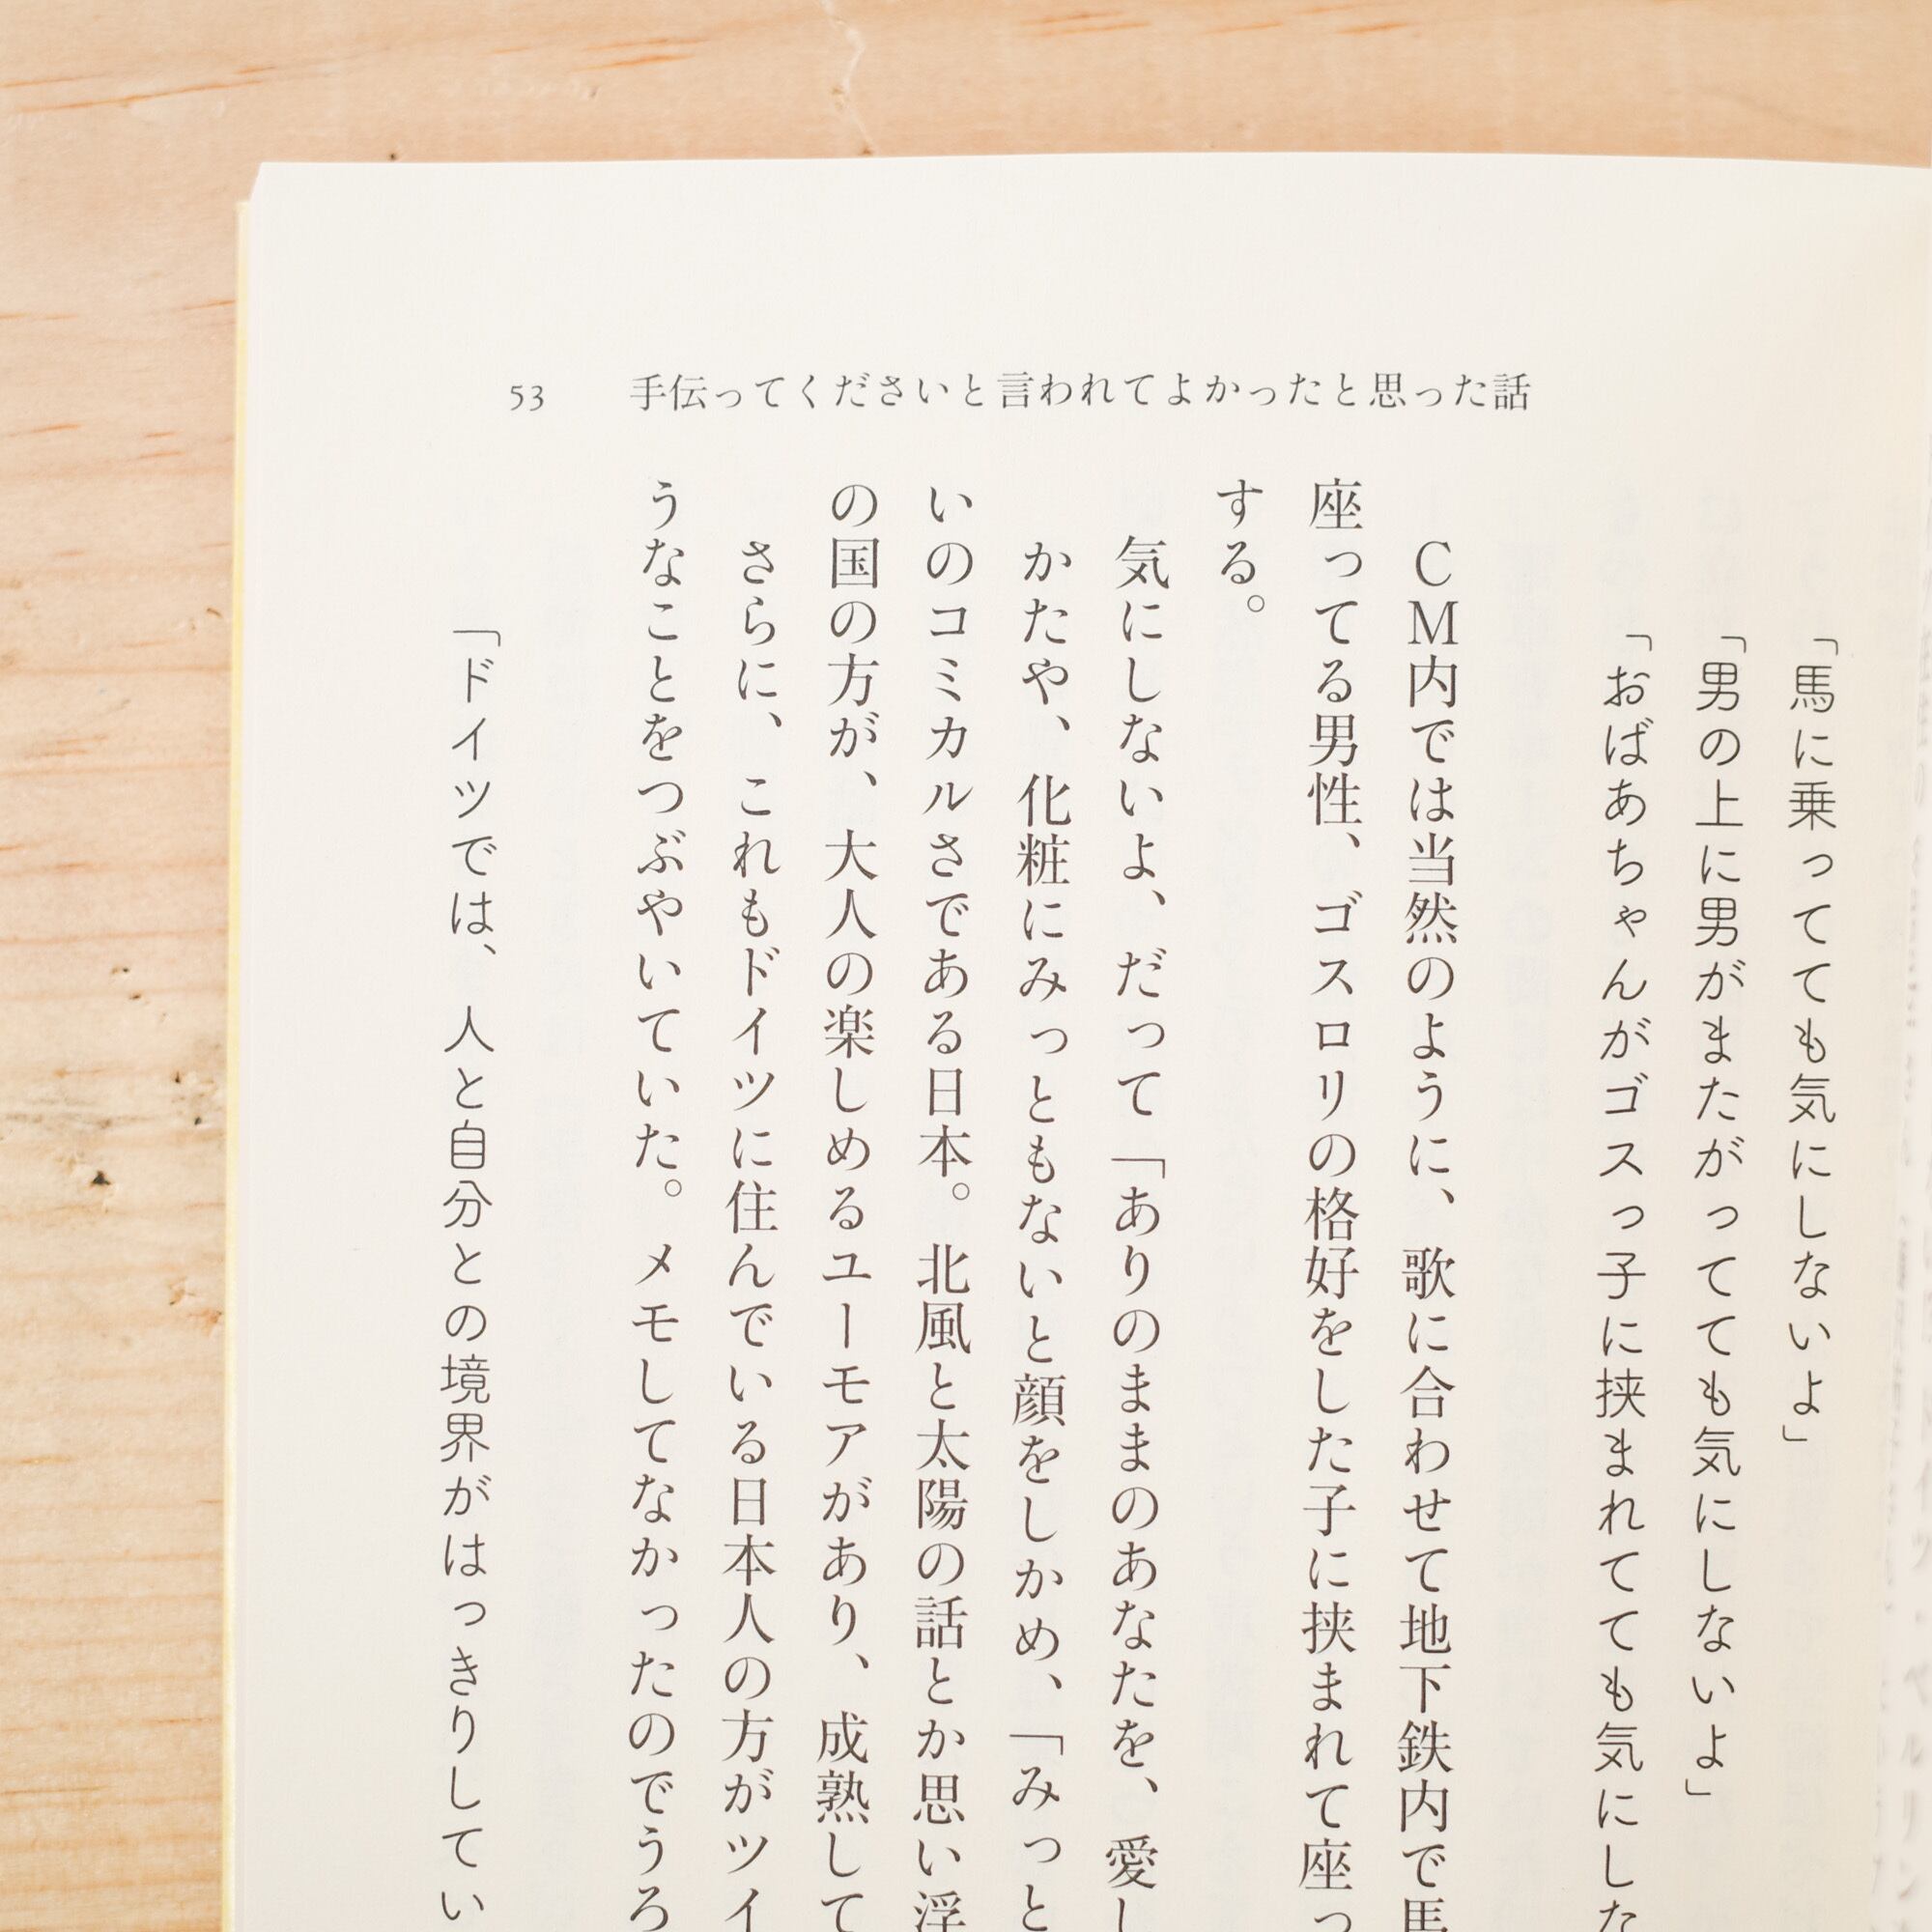 53 手伝ってくださいと言われてよかったと思った話
「馬に乗ってても気にしないよ」
「男の上に男がまたがってても気にしないよ」
「おばあちゃんがゴスっ子に挟まれてても気にした
CM内では当然のように、歌に合わせて地下鉄内で馬
座ってる男性、ゴスロリの格好をした子に挟まれて座っ
する。
気にしないよ、だって「ありのままのあなたを、愛し
かたや、化粧にみっともないと顔をしかめ、「みっと
いのコミカルさである日本。北風と太陽の話とか思い浮
の国の方が、大人の楽しめるユーモアがあり、成熟して
さらに、これもドイツに住んでいる日本人の方がツイ
うなことをつぶやいていた。メモしてなかったのでうろ
「ドイツでは、人と自分との境界がはっきりしてい